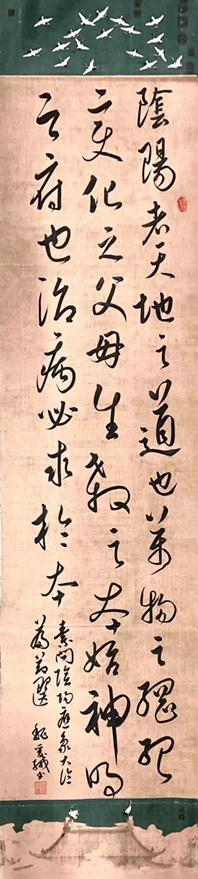 陰陽者天地之道也萬物之綱紀
變化之父母生殺之本始神明
之府也治病必求於本
素問陰陽應象大論